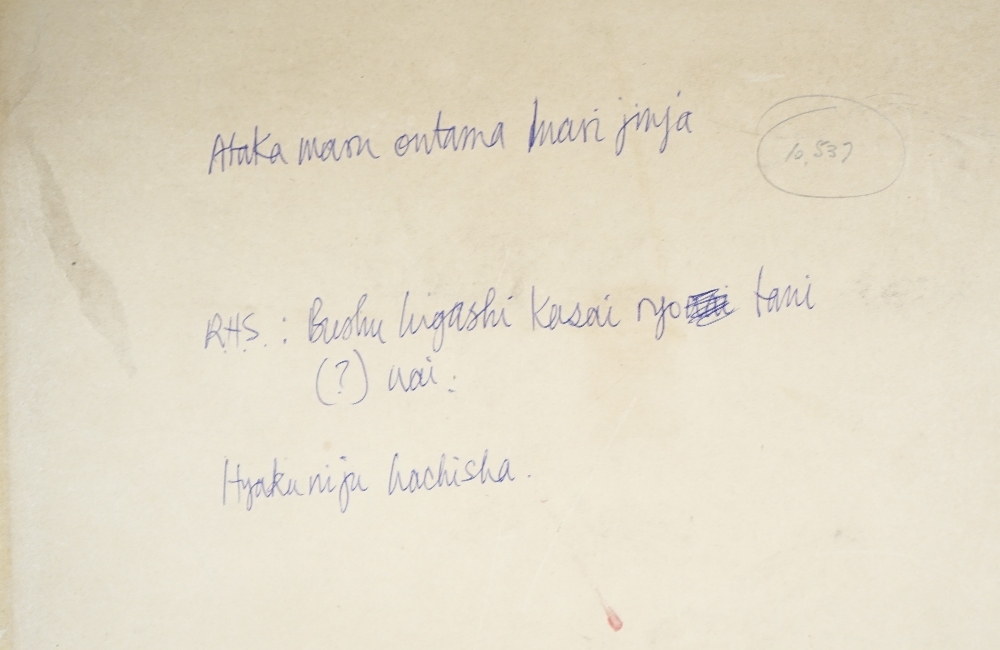 Ataka maru ontama Inari jinja
10,537
RHS.: Bushu higashi Kasai ryo tani
(?) nai:
Hyaku niju hachisha.